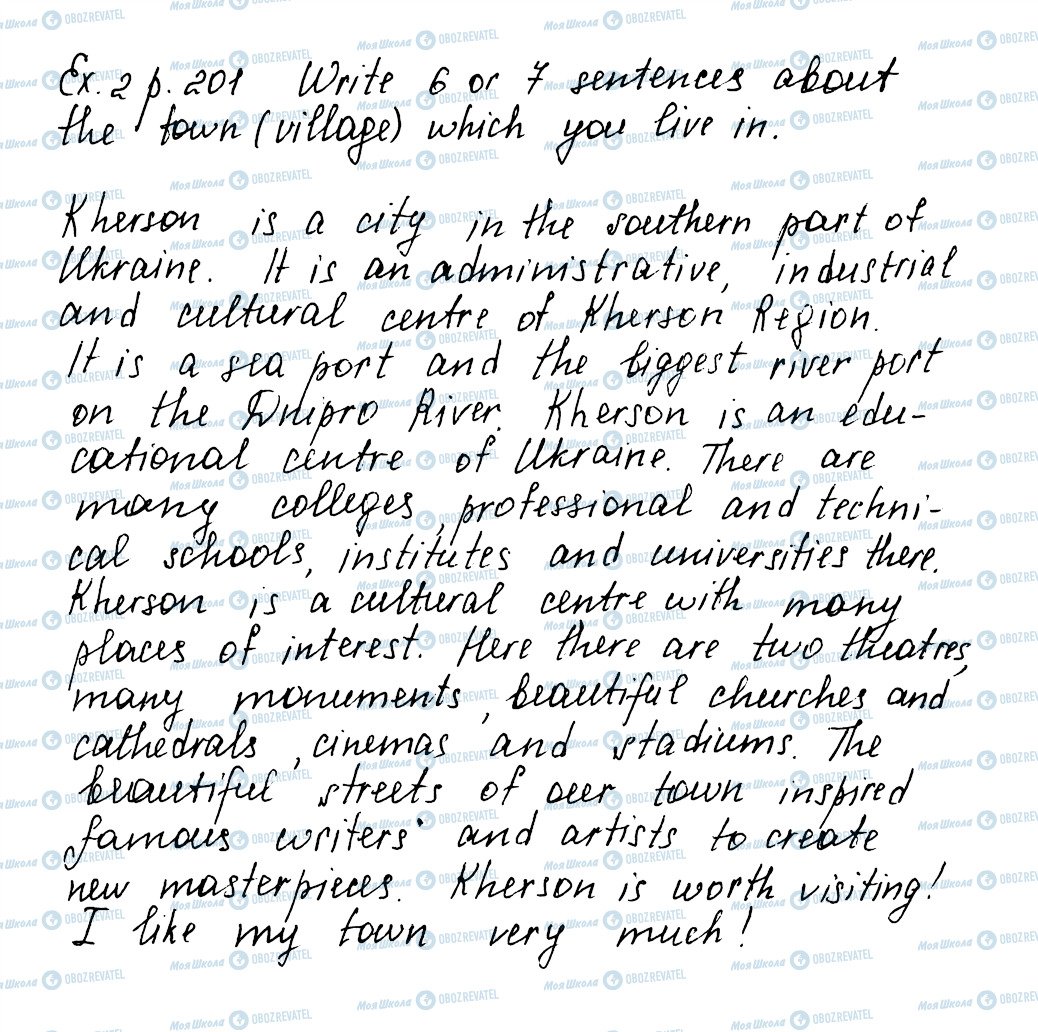 Ex. 2 p. 201 Write 6 or 7 sentences about
the town (village) which you live in.
Kherson is a city in the southern part of
Ukraine. It is an administrative, industrial
and cultural centre of Kherson Region.
It is a sea port and the biggest river port
on the Dnipro River. Kherson is an edu-
cational centre of Ukraine. There are
many colleges, professional and techni-
cal schools, institutes and universities there.
Kherson is a cultural centre with many
places of interest. Here there are two theatres,
many monuments, beautiful churches and
cathedrals, cinemas and stadiums. The
beautiful streets of our town inspired
famous writers and artists to create
new masterpieces. Kherson is worth visiting!
I like my town very much!